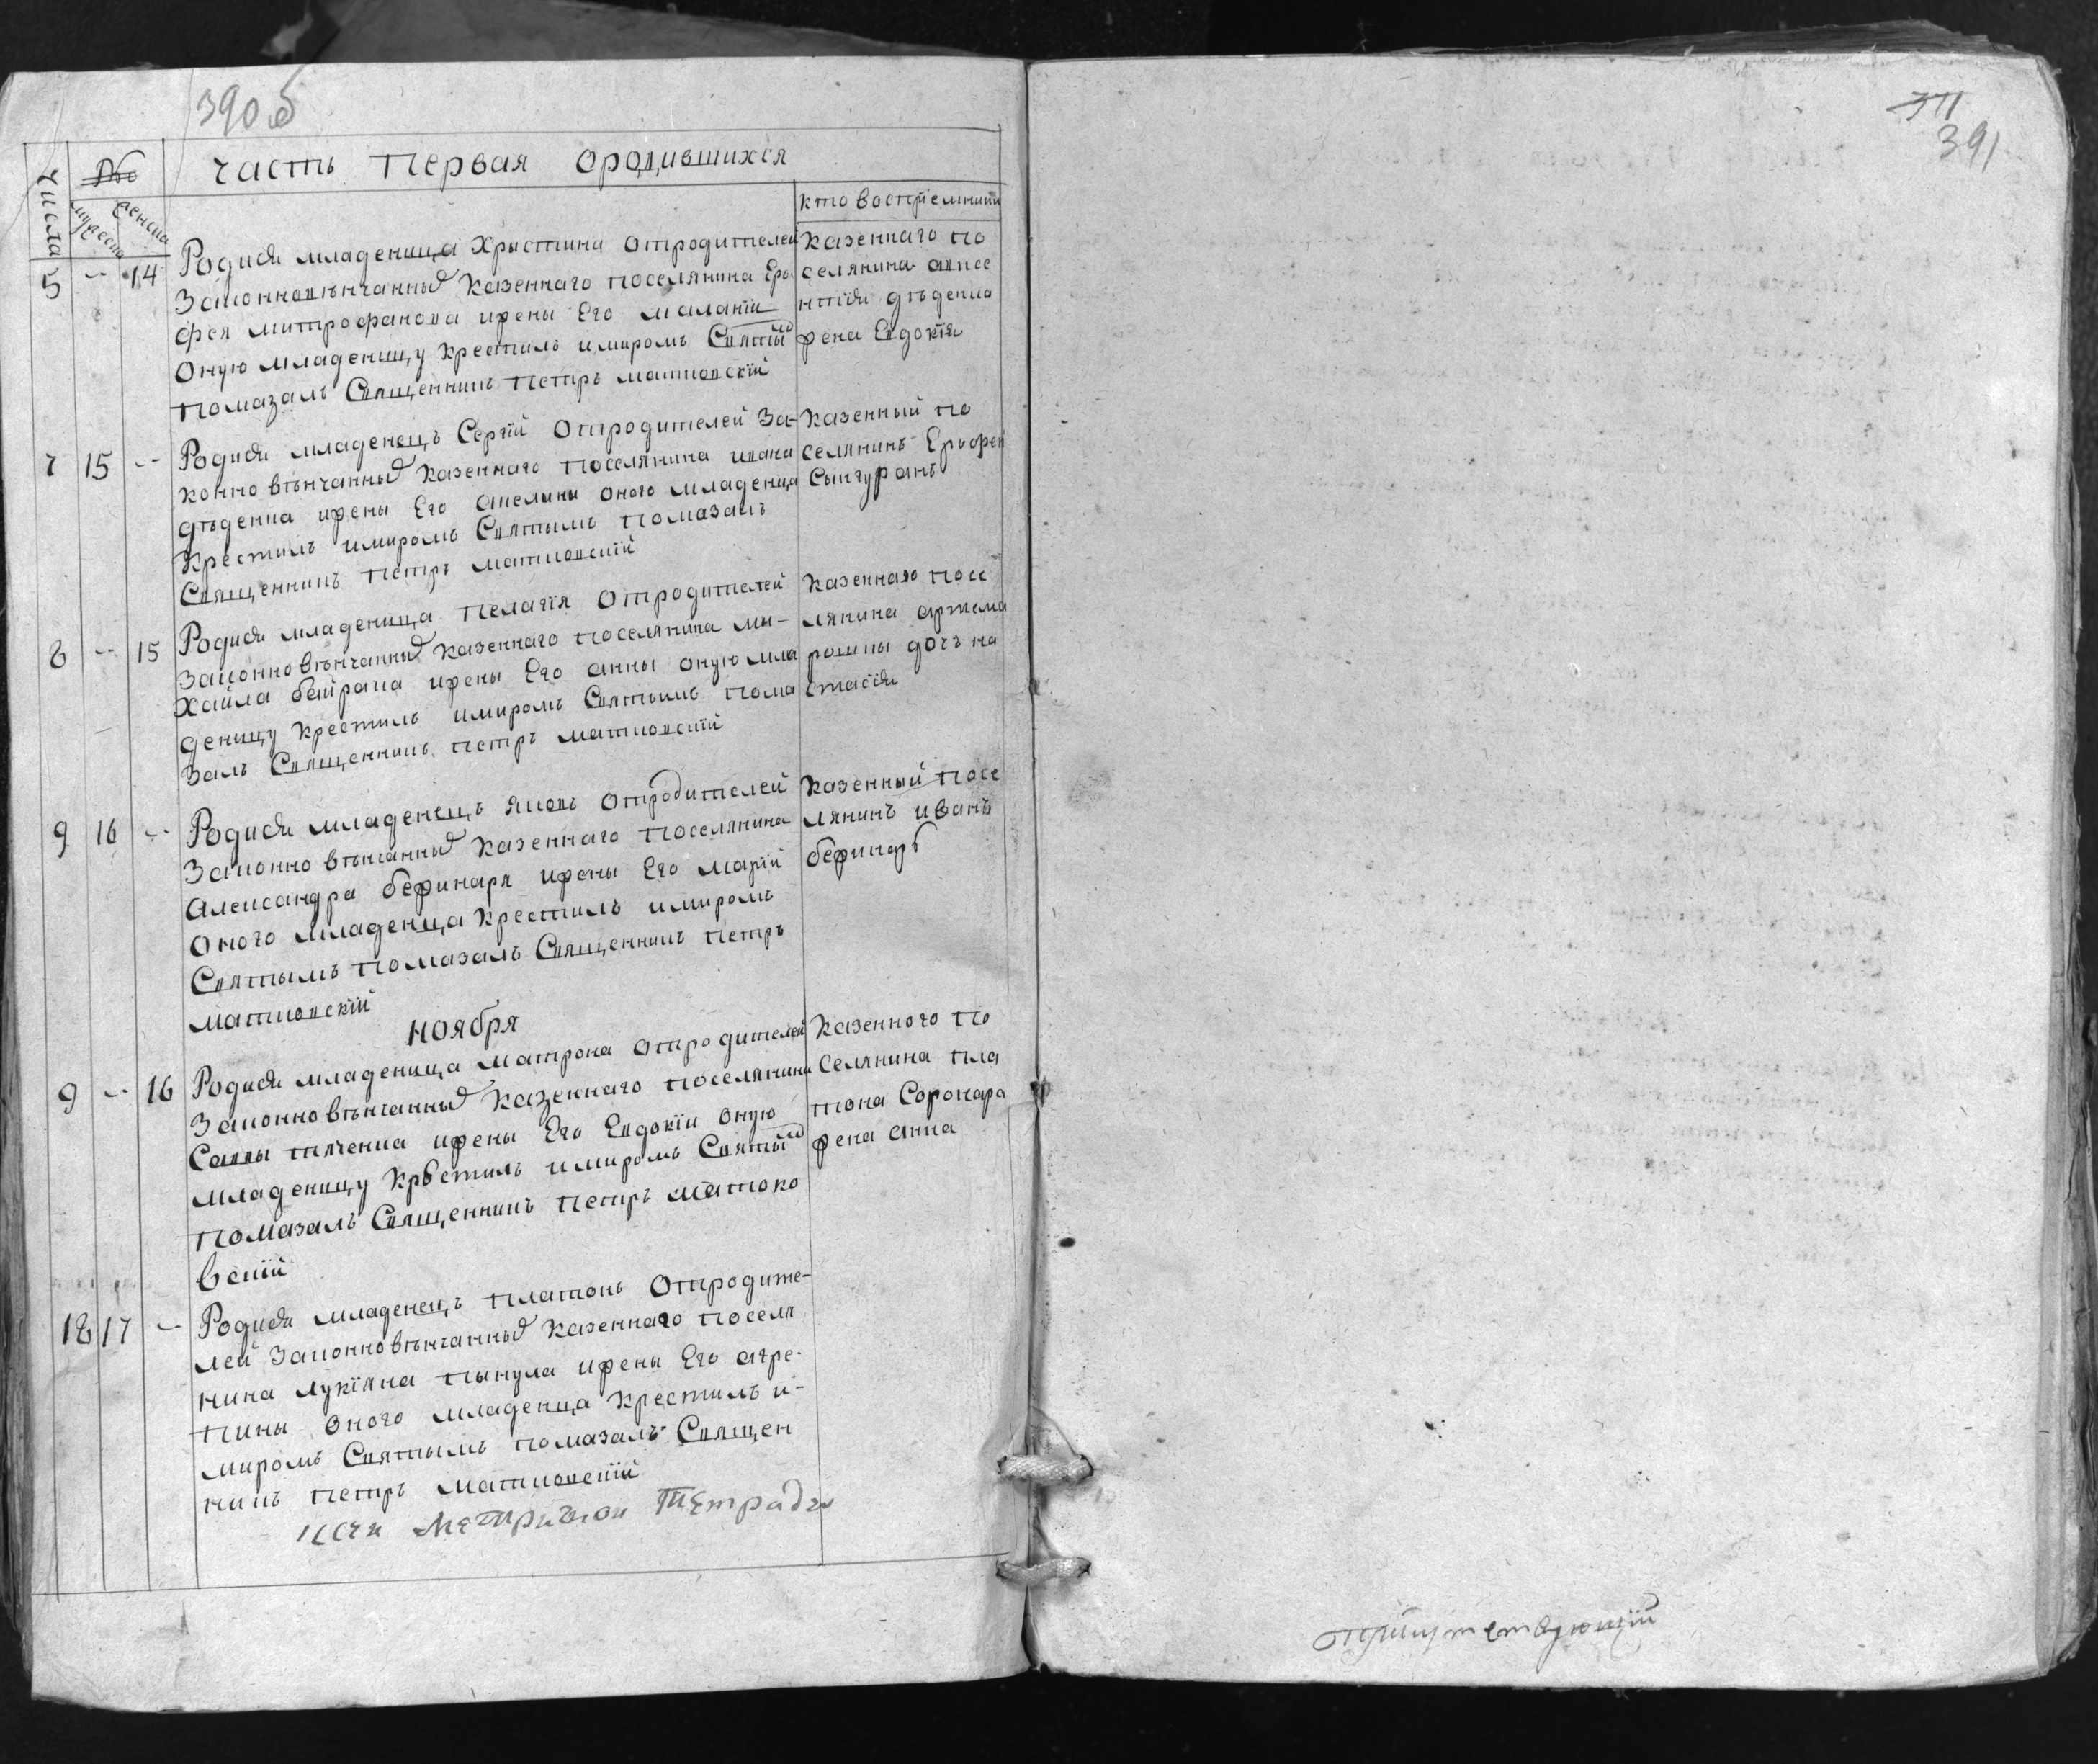 390 б
часть Первая ородившихся
числа
№
мужеска
женска
кто восприемники
5 - 14 Родися младеница Христина отродителей
Законновѣнчанных Казеннаго поселянина Еро
фея митрофанова ижены Его маланїи
Оную младеницу Крестилъ имиромъ Святым
Помазалъ Священникъ Петръ матковскїй
Казеннаго по
селянина авксе
нтїя дѣденка
жена Евдокїя
7 15 - Родися младенецъ Сергїй Отродителей За-
конно вѣнчанных Казеннаго Поселянина ивана
дѣденка ижены Его акелины оного младенца
Крестилъ имиромъ Святымъ Помазалъ
Священникъ Петръ матковскїй
Казенный по
селянинъ Ерофей
Сынгуранъ
8 - 15 Родися младеница Пелагїя Отродителей
Законно вѣнчанных Казеннаго поселянина ми-
хайла байрака ижены Его анны оную мла
деницу Крестилъ имиромъ Святымъ пома
залъ Священникъ Петръ матковскїй
Казеннаго посе
лянина артема
рошки дочь на
стасїя
9 16 - Родися младенецъ яковъ Отродителей
Законно вѣнчанных Казеннаго Поселянина
александра бежинаря ижены Его марїи
Оного младенца Крестилъ имиромъ
Святымъ Помазалъ Священникъ Петръ
матковскїй
Казенный посе
лянинъ иванъ
бежинарь
ноября
9 - 16 Родися младеница матрона Отродителей
Законно вѣнчанных Казеннаго поселянина
Саввы ткаченка ижены Его Евдокїи оную
младеницу Крестилъ имиромъ Святым
Помазалъ Священникъ Петръ матко
вскїй
Казенного по
Селянина пла
тона Сорочара
жена анна
18 17 - Родися младенецъ Платонъ Отродите-
лей Законновѣнчанных Казеннаго Поселя
нина лукїяна Пынула ижены Его агре-
пины оного младенца Крестилъ и-
миромъ Святымъ помазалъ Священ
никъ Петръ матковскїй
Метричной Тетради
371
391